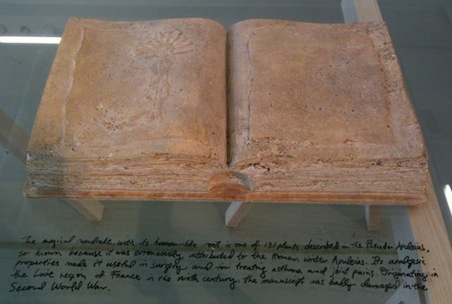 The magical mandrake, with its human-like root is one of 131 plants described in the Pseudo Apuleius,
so known because it was erroneously attributed to the Roman writer Apuleius. Its analgesic
properties made it useful in surgery and for treating asthma and joint pains. Originating in
the Loire region of France in the ninth century, the manuscript was badly damaged in the
Second World War.